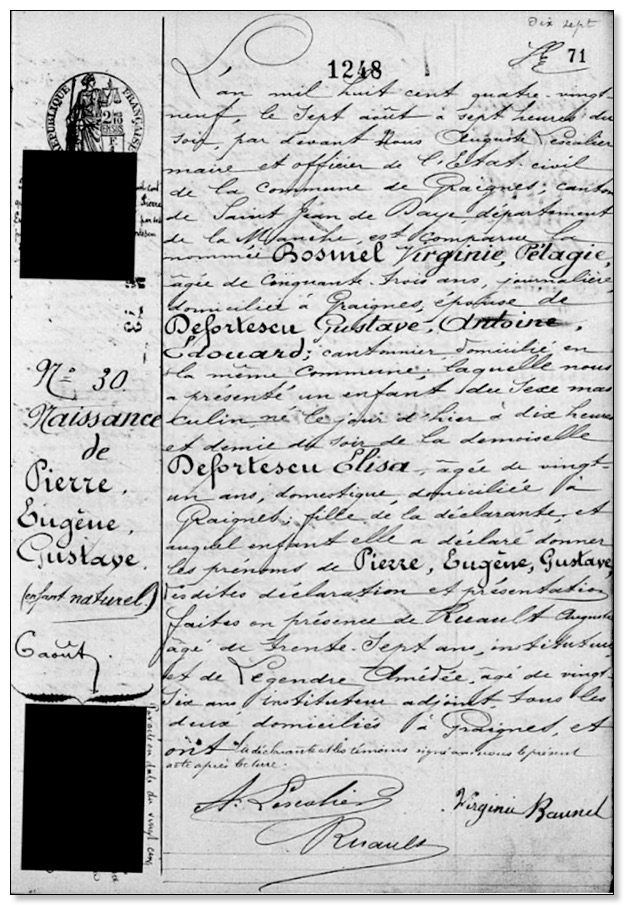 Dix sept
71
1248
RÉPUBLIQUE FRANÇAISE
L'an mil huit cent quatre-vingt-
neuf, le Sept août à sept heures du
soir, par devant Nous Auguste Lescalier
maire et officier de l'Etat-civil
de la Commune de Graignes, canton
de Saint Jean de Daye, département
de la Manche, est comparue la
nommée Bosmel Virginie, Pélagie,
âgée de Cinquante-trois ans, journalière,
domiciliée à Graignes, épouse de
Defortescu Gustave, Antoine,
Edouard, cantonnier domicilié en
la même Commune, laquelle nous
a présenté un enfant du Sexe mas
culin, né le jour d'hier à dix heures
et demie du soir de la demoiselle
Defortescu Elisa, âgée de vingt-
un ans, domestique, domiciliée à
Graignes, fille de la déclarante, et
auquel enfant elle a déclaré donner
les prénoms de Pierre, Eugène, Gustave,
Lesdites déclaration et présentation
faites en présence de Ruault Auguste
âgé de trente-Sept ans, instituteur,
et de Legendre Amédée, âgé de vingt-
six ans instituteur adjoint, tous les
deux domiciliés à Graignes, et
ont la déclarante et les témoins signé avec nous le présent
acte après lecture.
A. Lescalier
Virginie
Ruault
Pierre
No 30
Naissance
de
Pierre,
Eugène,
Gustave.
(enfant naturel)
6 août.
date du vingt cinq